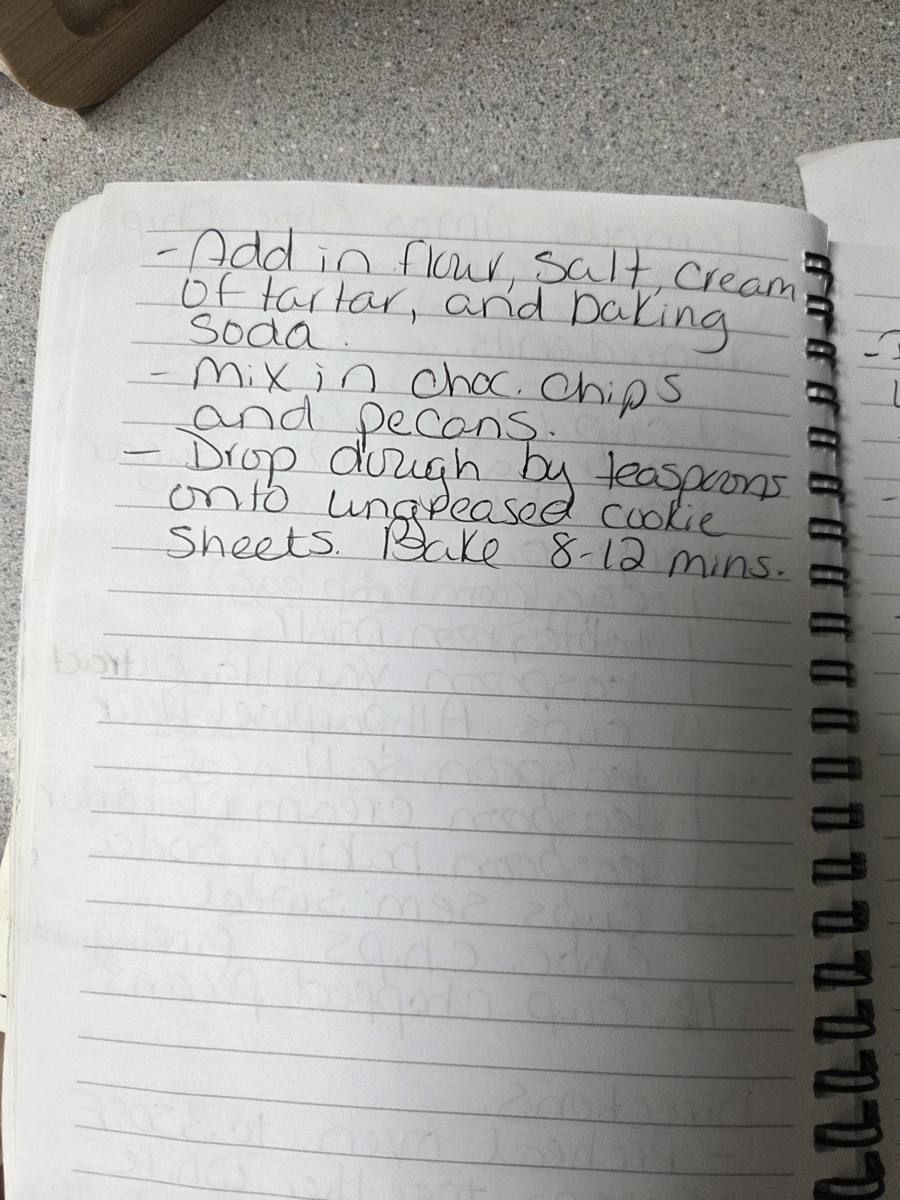 - Add in flour, salt, cream
of tartar, and baking
soda.
- Mix in choc. chips
and pecans.
- Drop dough by teaspoons
onto ungreased cookie
sheets. Bake 8-12 mins.